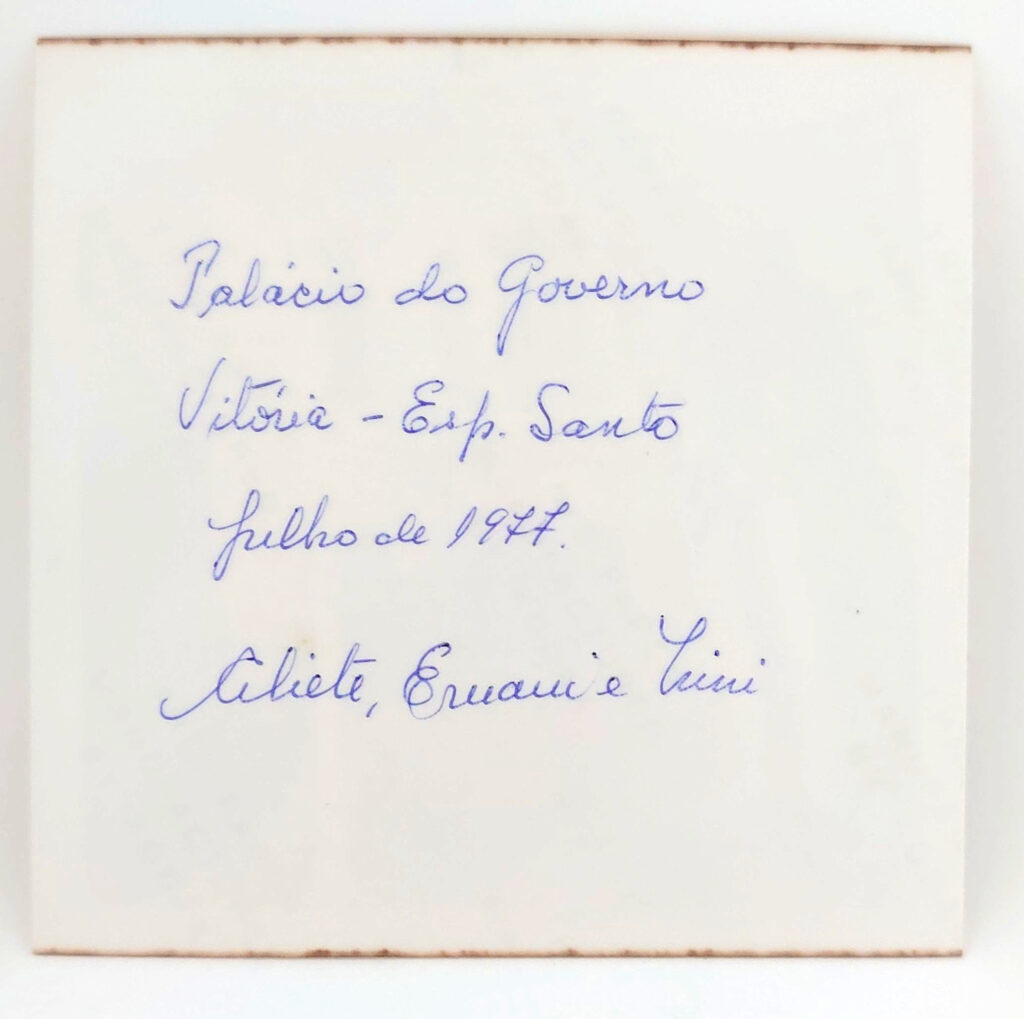 Palácio do Governo
Vitória - Esp. Santo
Julho de 1977.
Ernani e